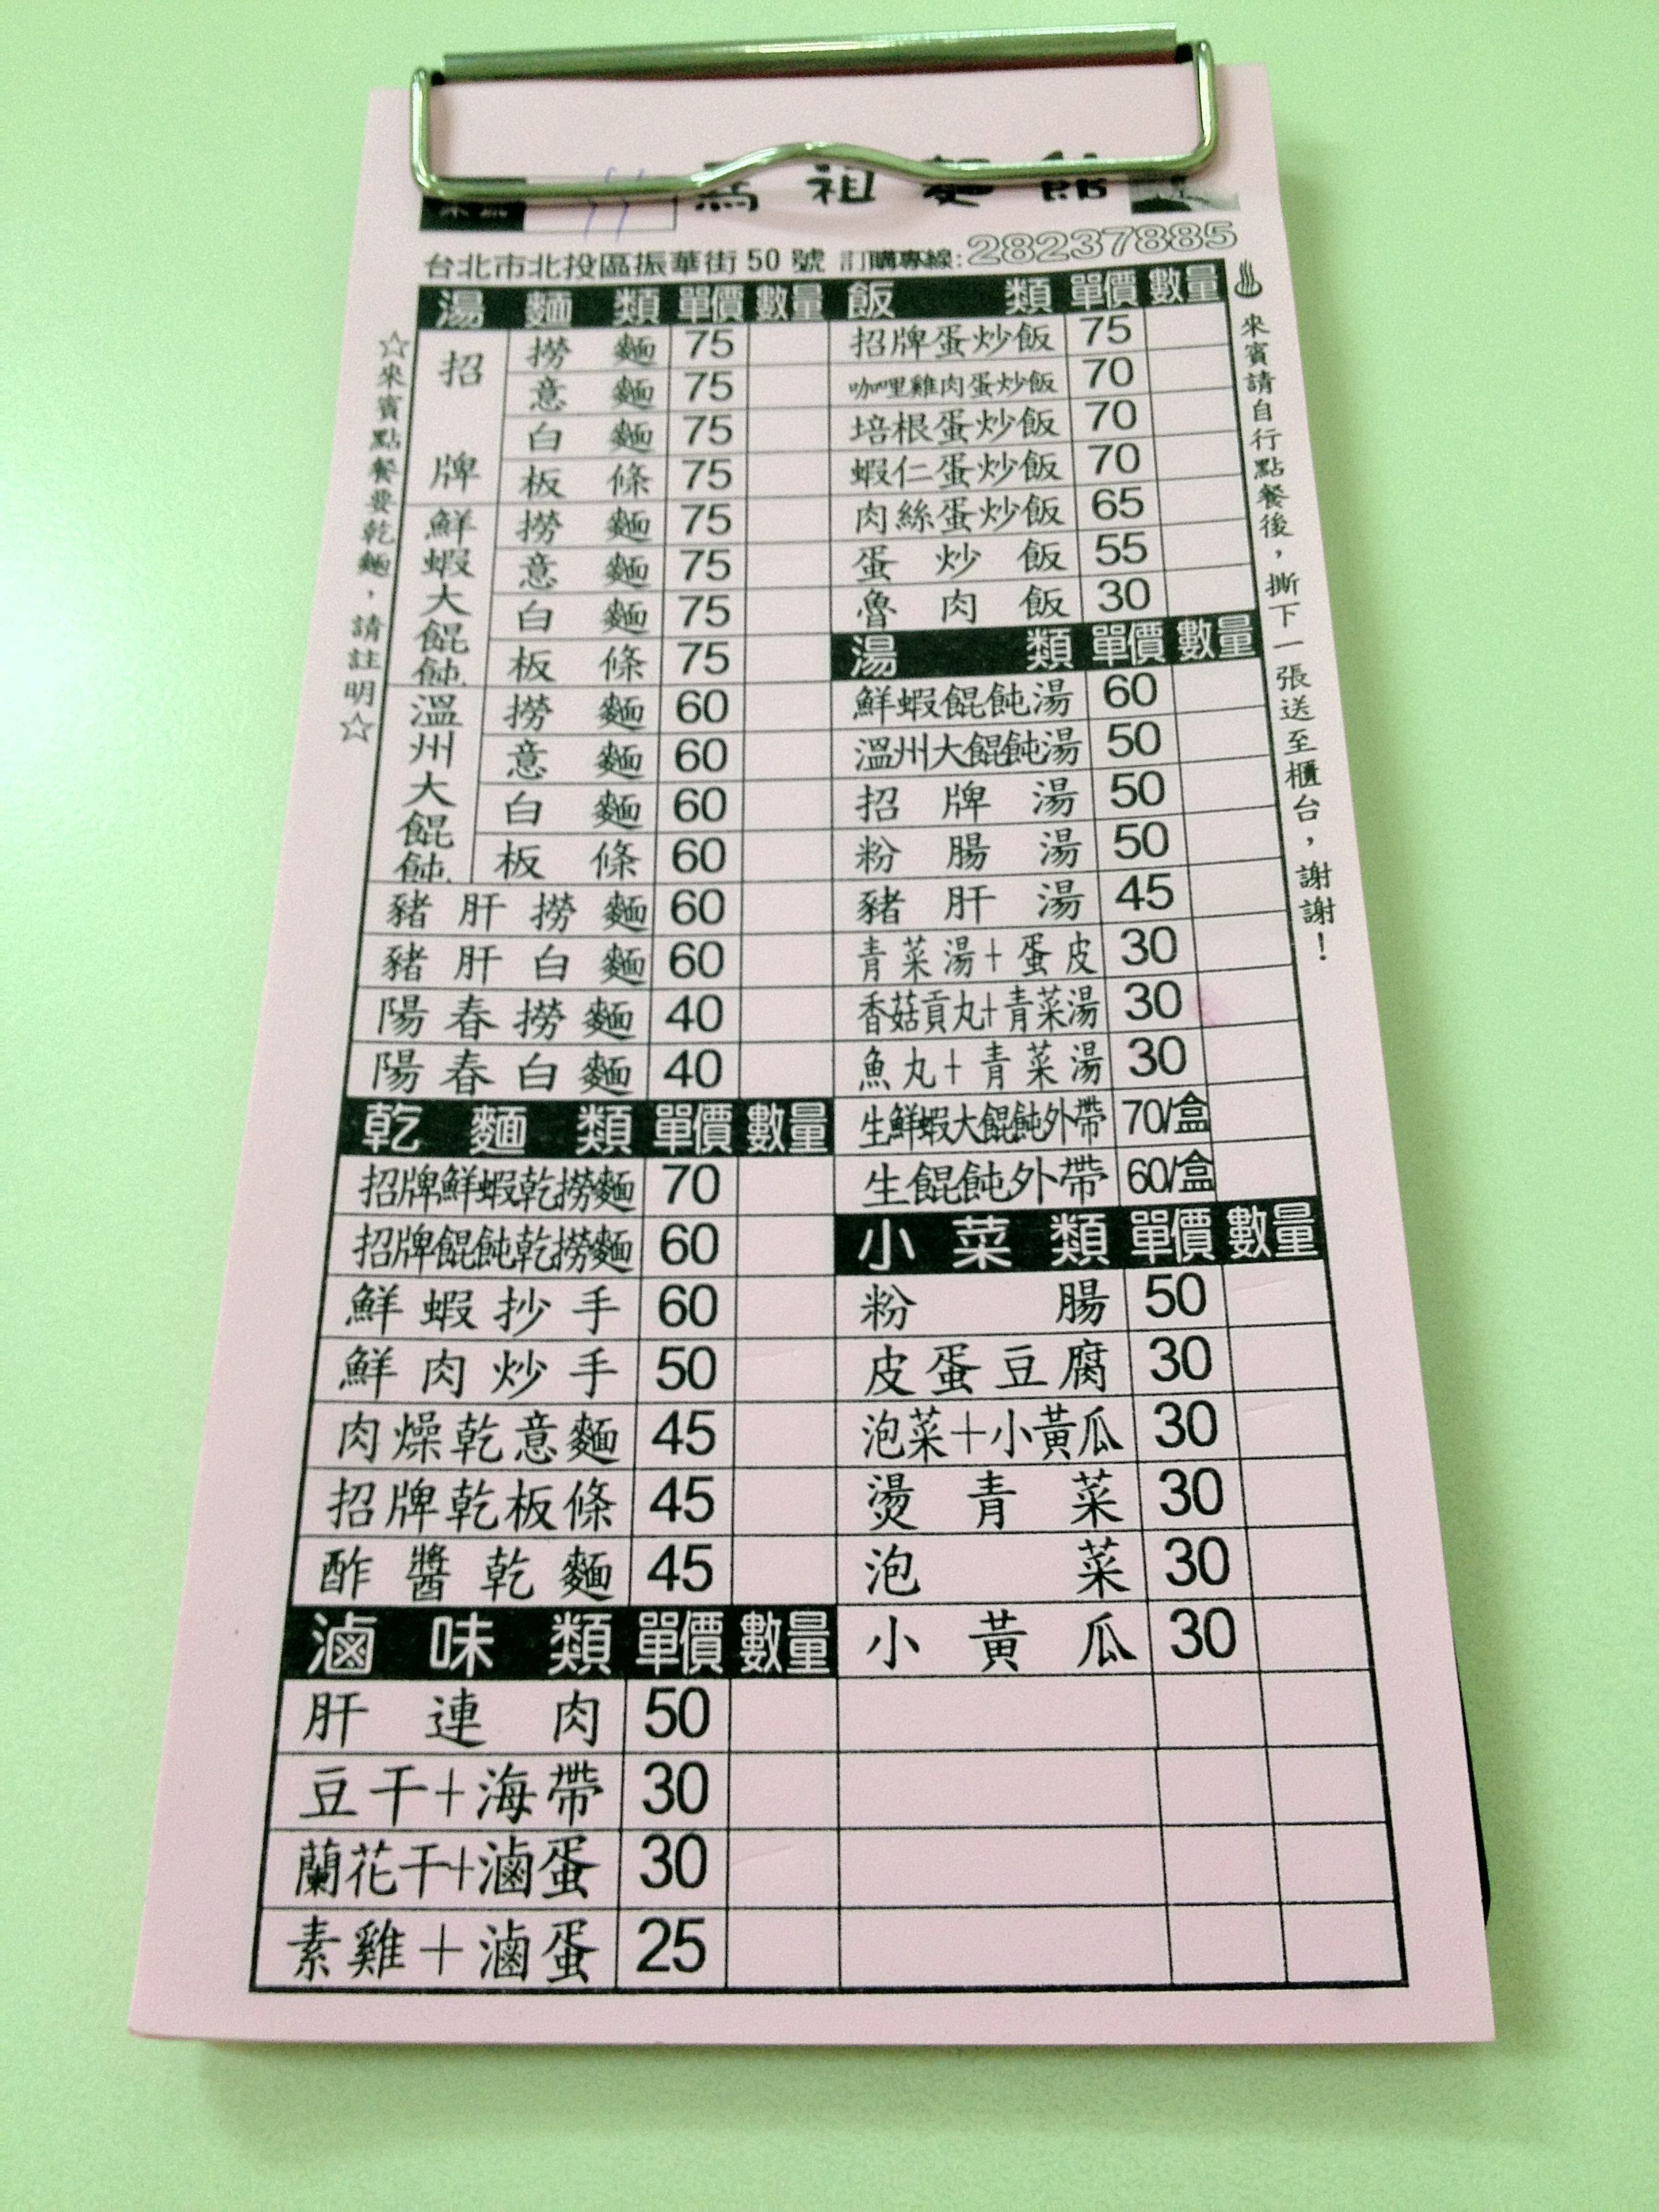 馬祖麵館
台北市北投區振華街50號 訂購專線:28237885
☆來賓點餐要乾麵，請註明☆
湯麵類 單價 數量
招牌
撈麵 75
意麵 75
白麵 75
板條 75
鮮蝦大餛飩
撈麵 75
意麵 75
白麵 75
板條 75
溫州大餛飩
撈麵 60
意麵 60
白麵 60
板條 60
豬肝撈麵 60
豬肝白麵 60
陽春撈麵 40
陽春白麵 40
乾麵類 單價 數量
招牌鮮蝦乾撈麵 70
招牌餛飩乾撈麵 60
鮮蝦抄手 60
鮮肉炒手 50
肉燥乾意麵 45
招牌乾板條 45
酢醬乾麵 45
滷味類 單價 數量
肝連肉 50
豆干+海帶 30
蘭花干+滷蛋 30
素雞+滷蛋 25
飯類 單價 數量
招牌蛋炒飯 75
咖哩雞肉蛋炒飯 70
培根蛋炒飯 70
蝦仁蛋炒飯 70
肉絲蛋炒飯 65
蛋炒飯 55
魯肉飯 30
湯類 單價 數量
鮮蝦餛飩湯 60
溫州大餛飩湯 50
招牌湯 50
粉腸湯 50
豬肝湯 45
青菜湯+蛋皮 30
香菇貢丸+青菜湯 30
魚丸+青菜湯 30
生鮮蝦大餛飩外帶 70/盒
生餛飩外帶 60/盒
小菜類 單價 數量
粉腸 50
皮蛋豆腐 30
泡菜+小黃瓜 30
燙青菜 30
泡菜 30
小黃瓜 30
來賓請自行點餐後，撕下一張送至櫃台，謝謝！